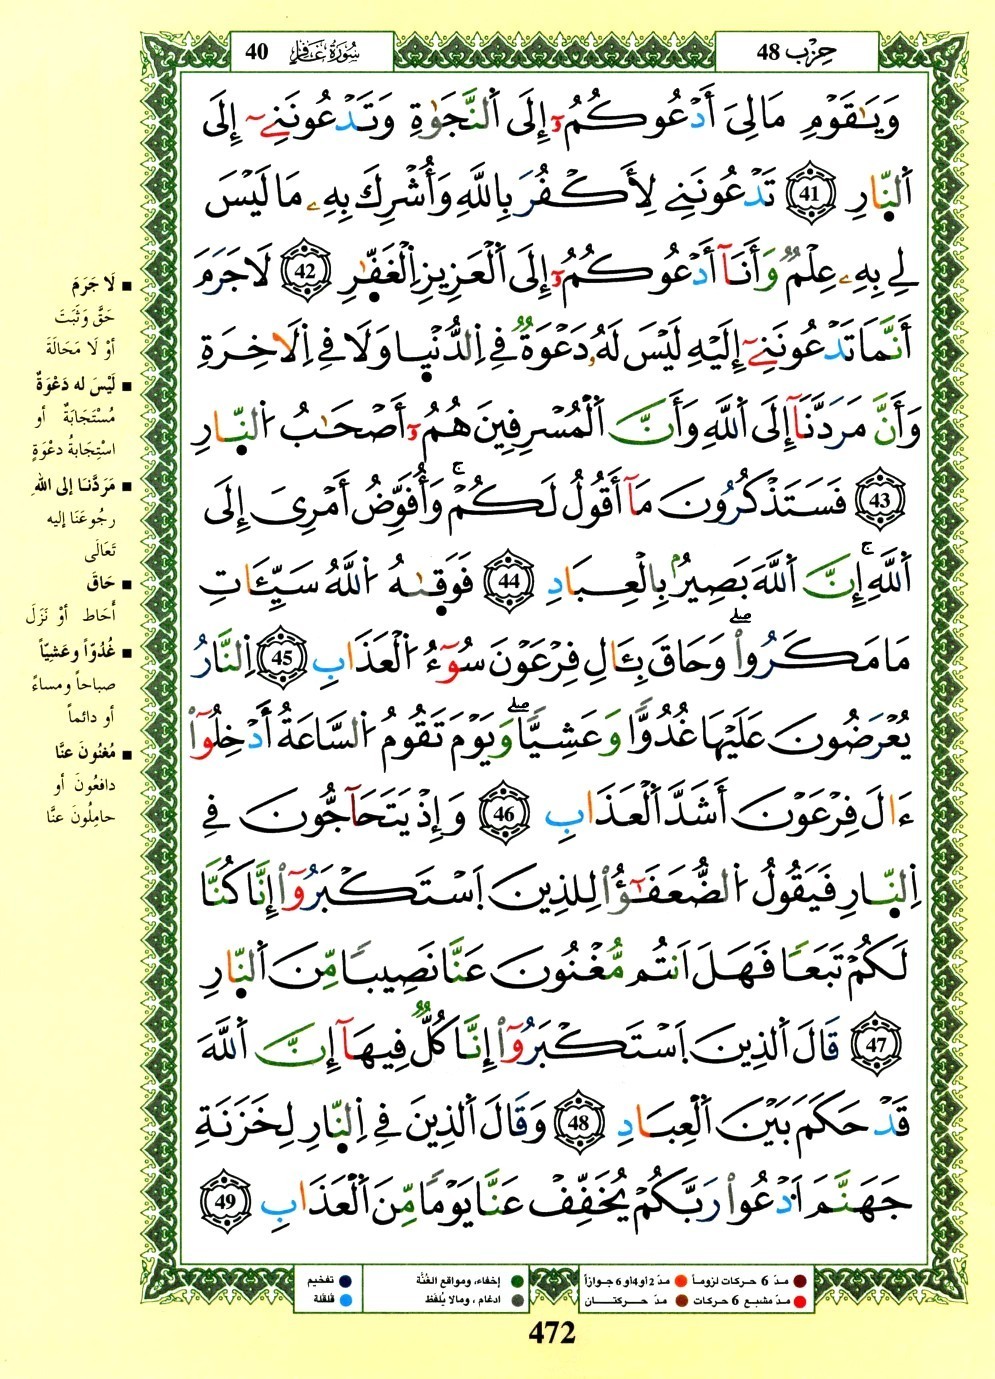 حِزْب 48
سُورَةُ غَافِر 40
وَيَٰقَوْمِ مَالِيَ أَدْعُوكُمُۥٓ إِلَى اَ۬لنَّجَوٰةِ وَتَدْعُونَنِےٓ إِلَى
اَ۬لنّ۪ارِ 41 تَدْعُونَنِے لِأَكْفُرَ بِاللَّهِ وَأُشْرِكَ بِهِۦ مَا لَيْسَ
لِے بِهِۦ عِلْمٌ وَأَنَآ أَدْعُوكُمُۥٓ إِلَى اَ۬لْعَزِيزِ اِ۬لْغَفّٰ۪رِ 42 لَا جَرَمَ
أَنَّمَا تَدْعُونَنِےٓ إِلَيْهِ لَيْسَ لَهُۥ دَعْوَةٌ فِے اِ۬لدُّنْي۪ا وَلَا فِے اِ۬لَاخِرَةِ
وَأَنَّ مَرَدَّنَآ إِلَى اَ۬للَّهِ وَأَنَّ اَ۬لْمُسْرِفِينَ هُمُۥٓ أَصْحَٰبُ اُ۬لنّ۪ارِ
43 فَسَتَذْكُرُونَ مَآ أَقُولُ لَكُمْۚ وَأُفَوِّضُ أَمْرِيَ إِلَى
اَ۬للَّهِۚ إِنَّ اَ۬للَّهَ بَصِيرُۢ بِالْعِبَادِ 44 فَوَق۪ىٰهُ اُ۬للَّهُ سَيِّـَٔاتِ
مَا مَكَرُواْۖ وَحَاقَ بِـَٔالِ فِرْعَوْنَ سُوٓءُ اُ۬لْعَذَابِ 45 اِ۬لنَّارُ
يُعْرَضُونَ عَلَيْهَا غُدُوّاً وَعَشِيّاًۖ وَيَوْمَ تَقُومُ اُ۬لسَّاعَةُ أَدْخِلُوٓاْ
ءَالَ فِرْعَوْنَ أَشَدَّ اَ۬لْعَذَابِ 46 وَإِذْ يَتَحَآجُّونَ فِے
اِ۬لنّ۪ارِ فَيَقُولُ اُ۬لضُّعَفَٰٓؤُاْ لِلذِينَ اَ۪سْتَكْبَرُوٓاْ إِنَّا كُنَّا
لَكُمْ تَبَعاً فَهَلَ اَنتُم مُّغْنُونَ عَنَّا نَصِيباً مِّنَ اَ۬لنّ۪ارِ
47 قَالَ اَ۬لذِينَ اَ۪سْتَكْبَرُوٓاْ إِنَّا كُلٌّ فِيهَآ إِنَّ اَ۬للَّهَ
قَدْ حَكَمَ بَيْنَ اَ۬لْعِبَادِ 48 وَقَالَ اَ۬لذِينَ فِے اِ۬لنّ۪ارِ لِخَزَنَةِ
جَهَنَّمَ اَ۟دْعُواْ رَبَّكُمْ يُخَفِّفْ عَنَّا يَوْماً مِّنَ اَ۬لْعَذَابِ 49
■ لَا جَرَمَ
حَقَّ وَثَبَتَ
أوْ لَا مَحَالَةَ
■ لَيْسَ له دَعْوَةٌ
مُسْتَجَابَةٌ أو
اسْتِجَابةُ دعْوَةٍ
■ مَرَدَّنا إلى الله
رجُوعَنَا إليه
تَعَالَى
■ حَاقَ
أَحَاط أوْ نَزَلَ
■ غُدُوّاً وعَشِيّاً
صباحاً ومساءً
أو دائماً
■ مُغْنُونَ عنَّا
دافعُونَ أو
حامِلُونَ عنَّا
مدّ 6 حركات لزوماً
مدّ 2 أو 4 أو 6 جوازاً
مدّ مشبع 6 حركات
مدّ حركتــان
إخفاء، ومواقع الغُنَّة
ادغام ، ومالا يُلفَظ
تفخيم
قلقلة
472